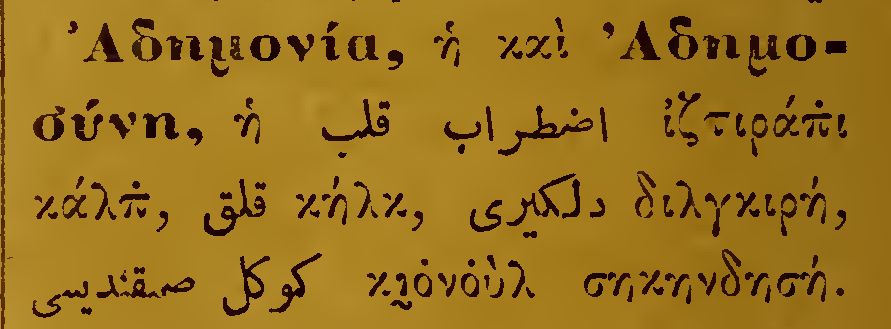 Ἀδημονία, ἡ καὶ Ἀδημο-
σύνη, ἡ اضطراب قلب ἰζτιράπ̇ι
κάλπ̇, قلق κήλκ, دلكيری διλγκιρή,
كوكل صيقنديسی κι̮ὀνὀὺλ σηκηνδησή.